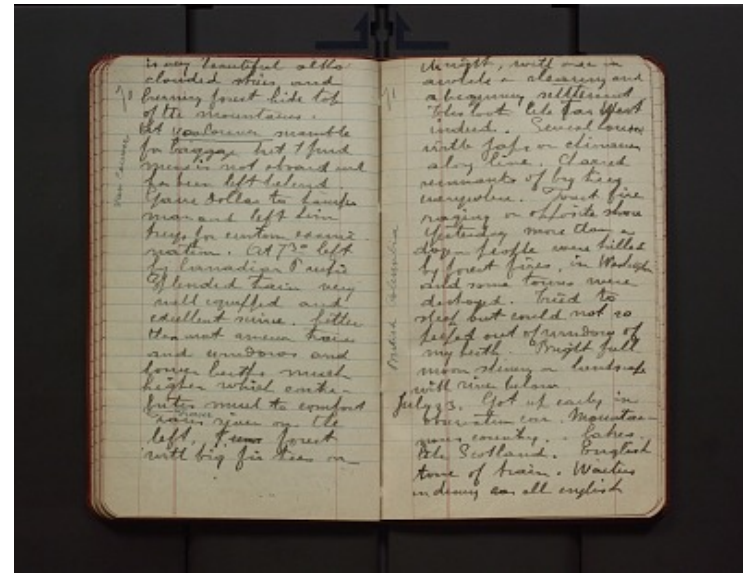 is very beautiful altho
clouded skies and
burning forest hide top
of the mountains.
At Vancouver scramble
for baggage but I find
mine is not aboard and
has been left behind
Gave dollar to transfer
man and left him
keys for custom exami-
nation. At 7 30 left
by Canadian Pacific
Splendid train very
well equipped and
excellent service. better
than most american trains
and windows and
lower berths much
higher which contri-
butes much to comfort
Fraser river on the
left. forest
with big fir trees on
Vancouver
70
71
British Columbia
th right, with once in
awhile a clearing and
a beginning settlement
this look like far West
indeed. Several houses
with Japs or chinamen
along line. Charred
remnants of big trees
everywhere. Forest fire
raging on opposite shore
Yesterday more than a
dozen people were killed
by forest fires, in Washington
and some towns were
destroyed. Tried to
sleep but could not so
peeped out of window of
my berth. Bright full
moon shining on landscape
with river below
July 23. Got up early in
observation car. Mountai-
nous country. Lakes.
like Scotland. English
tone of train. Waiters
in dining car all english